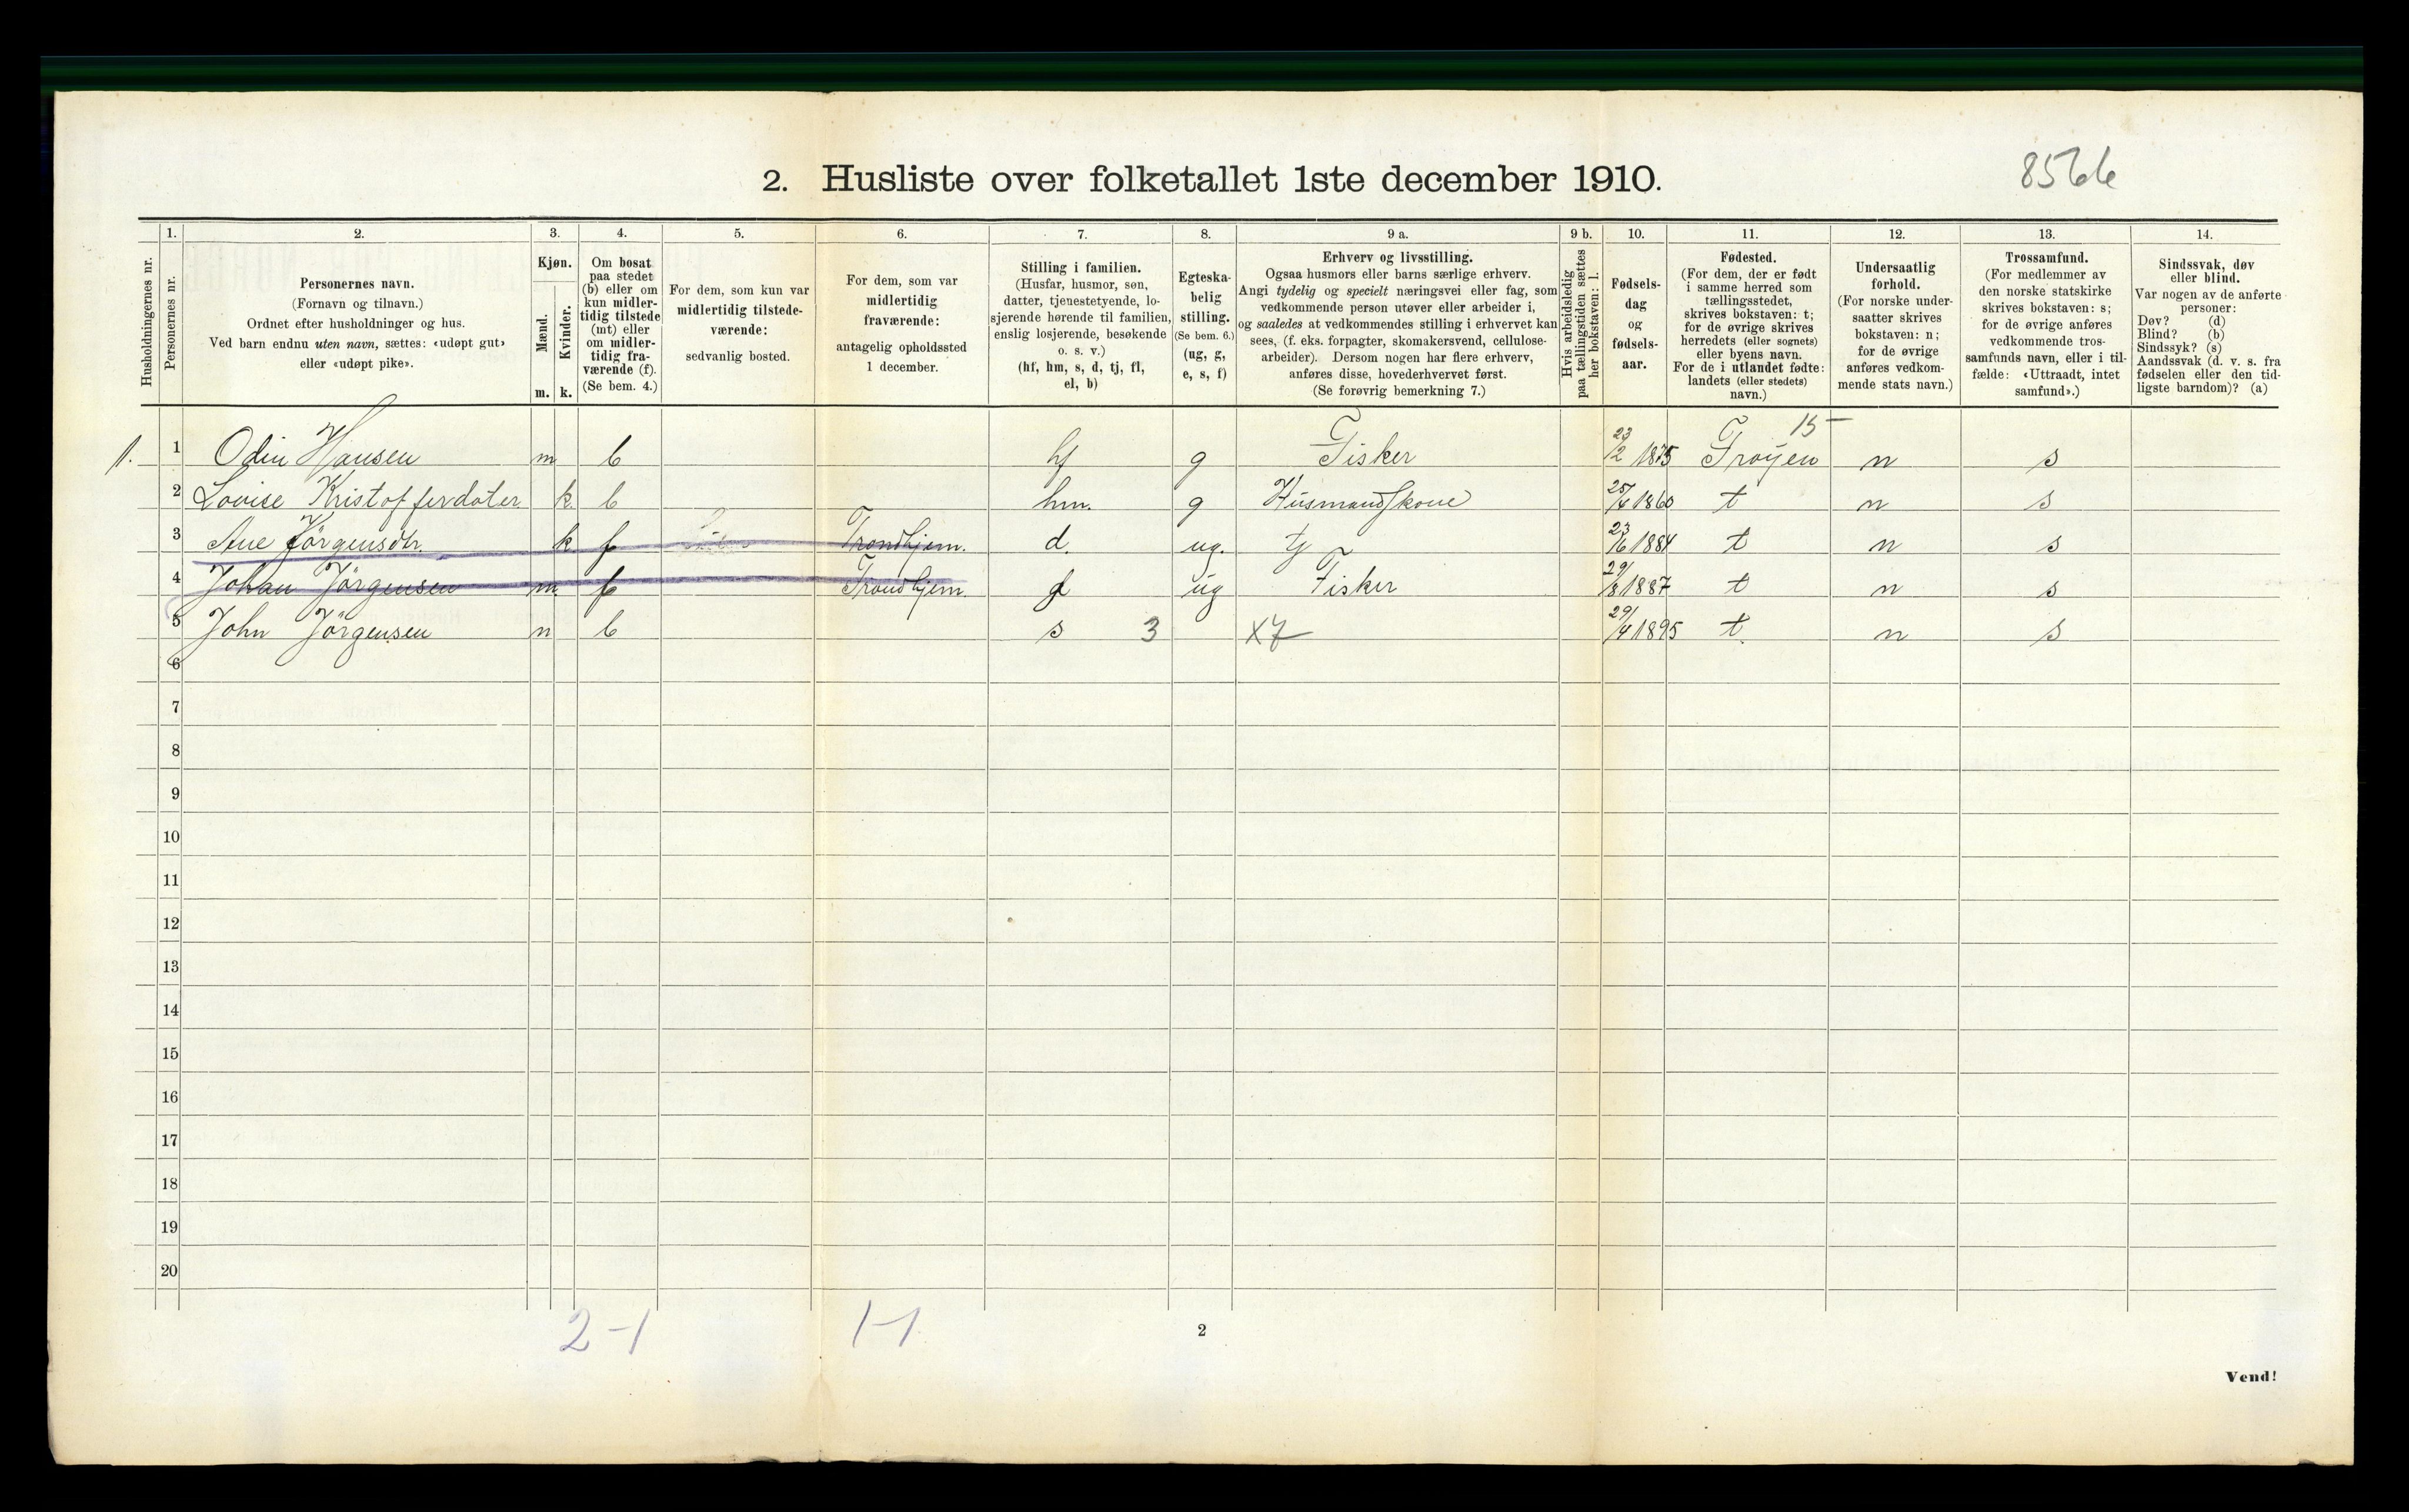 2. Husliste over folketallet 1ste december 1910.
Husholdningernes nr.
1.
Personernes nr.
2.
Personernes navn.
(Fornavn og tilnavn.)
Ordnet efter husholdninger og hus.
Ved barn endnu uten navn, sættes: «udøpt gut»
eller «udøpt pike».
3.
Kjøn.
Mænd.
Kvinder.
m. k.
4.
Om bosat
paa stedet
(b) eller om
kun midler-
tidig tilstede
(mt) eller
om midler-
tidig fra-
værende (f).
(Se bem. 4.)
5.
For dem, som kun var
midlertidig tilstede-
værende:
sedvanlig bosted.
6.
For dem, som var
midlertidig
fraværende:
antagelig opholdssted
1 december.
7.
Stilling i familien.
(Husfar, husmor, søn,
datter, tjenestetyende, lo-
sjerende hørende til familien,
enslig losjerende, besøkende
o. s. v.)
(hf, hm, s, d, tj, fl,
el, b)
8.
Egteska-
belig
stilling.
(Se bem. 6.)
(ug, g,
e, s, f)
9 a.
Erhverv og livsstilling.
Ogsaa husmors eller barns særlige erhverv.
Angi tydelig og specielt næringsvei eller fag, som
vedkommende person utøver eller arbeider i,
og saaledes at vedkommendes stilling i erhvervet kan
sees, (f. eks. forpagter, skomakersvend, cellulose-
arbeider). Dersom nogen har flere erhverv,
anføres disse, hovederhvervet først.
(Se forøvrig bemerkning 7.)
9 b.
Hvis arbeidsledig
paa tællingstiden sættes
her bokstaven: l.
10.
Fødsels-
dag
og
fødsels-
aar.
11.
Fødested.
(For dem, der er født
i samme herred som
tællingsstedet,
skrives bokstaven: t;
for de øvrige skrives
herredets (eller sognets)
eller byens navn.
For de i utlandet fødte:
landets (eller stedets)
navn.)
12.
Undersaatlig
forhold.
(For norske under-
saatter skrives
bokstaven: n;
for de øvrige
anføres vedkom-
mende stats navn.)
13.
Trossamfund.
(For medlemmer av
den norske statskirke
skrives bokstaven: s;
for de øvrige anføres
vedkommende tros-
samfunds navn, eller i til-
fælde: «Uttraadt, intet
samfund».)
14.
Sindssvak, døv
eller blind.
Var nogen av de anførte
personer:
Døv? (d)
Blind? (b)
Sindssyk? (s)
Aandssvak (d. v. s. fra
fødselen eller den tid-
ligste barndom)? (a)
15-
1. 1 Odin Hansen m b hf g Fisker 23/2 1875 Frøyen n s
2 Lovise Kristofferdater k. b hm. g Husmandskone 25/6 1860 t n s
3 Ane Jörgensdtr. k. f Trondhjem. d. ug. tj 23/6 1884 t n s
4 Johan Jörgensen m f Trondhjem. ug Fisker 29/8 1887 t n s
5 John Jörgensen m b s 3 x7 29/4 1895 t. n s
6
7
8
9
10
11
12
13
14
15
16
17
18
19
20
2-1 1-1
2
Vend!